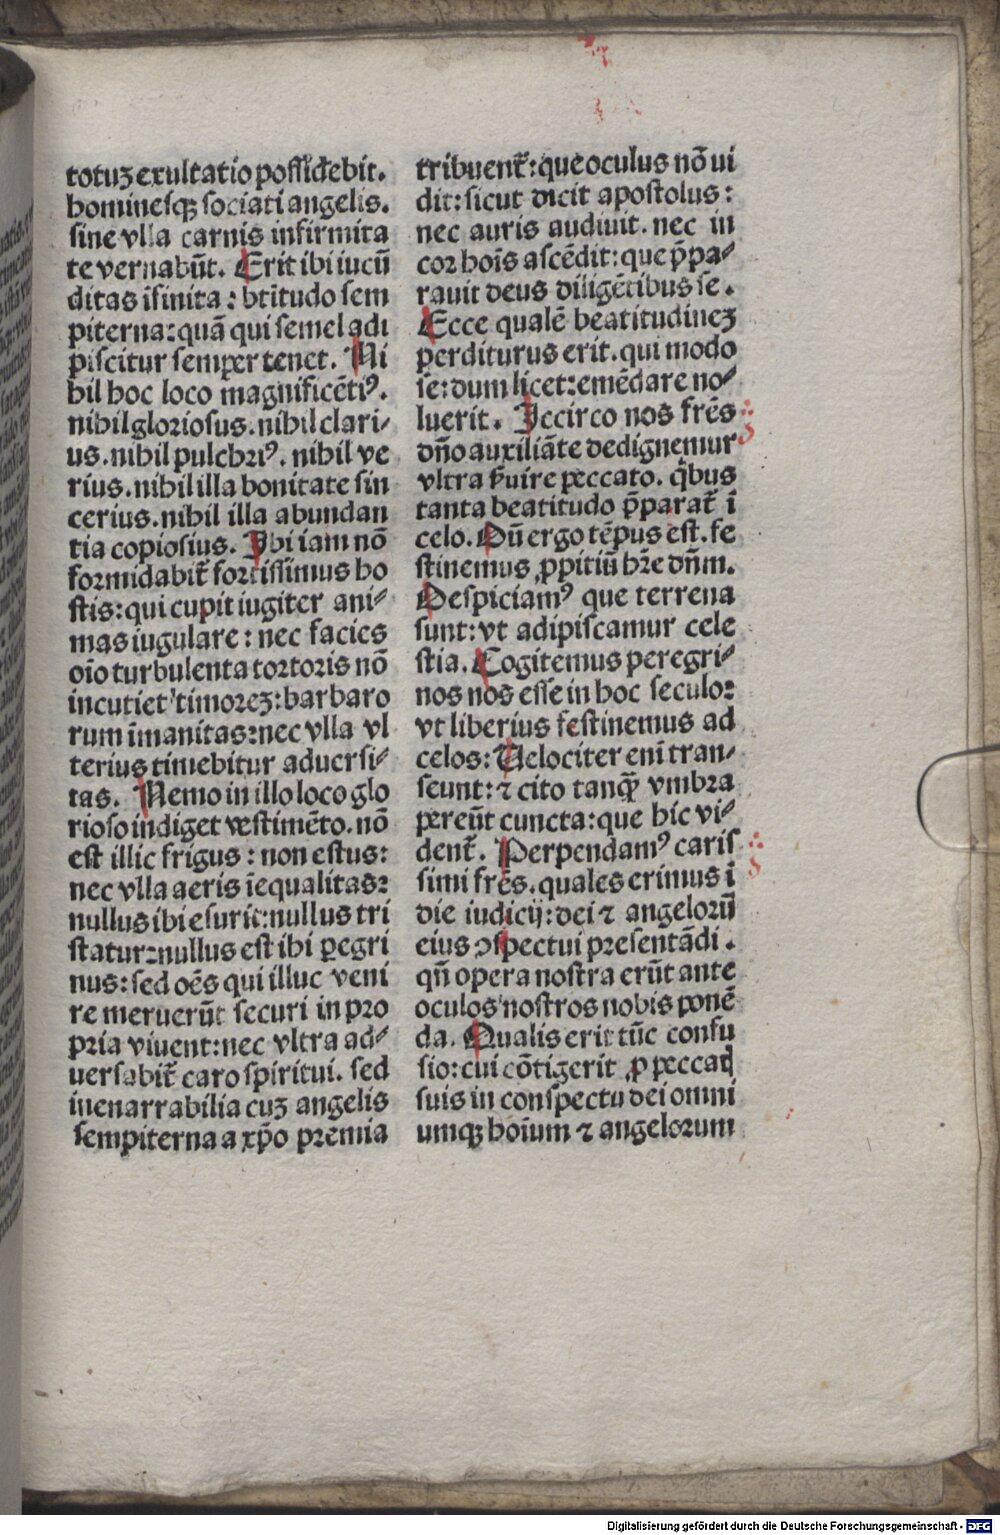 totuꝫ exultatio possidebit.
hominesqꝫ sociati angelis.
sine vlla carnis infirmita
te vernabūt. Erit ibi iucū
ditas īfinita: btītudo sem
piterna: quā qui semel adi
piscitur semper tenet. Ni
hil hoc loco magnificētiꝰ.
nihil gloriosus. nihil clari⸗
us. nihil pulchriꝰ. nihil ve
rius. nihil illa bonitate sin
cerius. nihil illa abundan
tia copiosius. Ibi iam nō
formidabit̄ fortissimus ho
stis: qui cupit iugiter ani⸗
mas iugulare: nec facies
oīo turbulenta tortoris nō
incutiet timoreꝫ: barbaro
rum īmanitas: nec vlla vl
terius timebitur aduersi⸗
tas. Nemo in illo loco glo
rioso indiget vestimēto. nō
est illic frigus: non estus:
nec vlla aeris īequalitas:
nullus ibi esurit: nullus tri
statur: nullus est ibi ꝑegri
nus: sed oēs qui illuc veni
re meruerūt securi in pro
pria viuent: nec vltra ad⸗
uersabit̄ caro spiritui. sed
inenarrabilia cuꝫ angelis
sempiterna a xp̄o premia
tribuent̄: que oculus nō ui
dit: sicut dicit apostolus:
nec auris audiuit. nec in
cor hoīs ascēdit: que p̄pa⸗
rauit deus diligētibus se.
Ecce qualē beatitudineꝫ
perditurus erit. qui modo
se: dum licet: emēdare no⸗
luerit. Iccirco nos frēs
dn̄o auxiliāte dedignemur
vltra ẜuire peccato. qͥbus
tanta beatitudo p̄parat̄ ī
celo. Dū ergo tēpus est. fe
stinemus ꝓpitiū hr̄e dn̄m.
Despiciamꝰ que terrena
sunt: vt adipiscamur cele
stia. Cogitemus peregri⸗
nos nos esse in hoc seculo:
vt liberius festinemus ad
celos: Uelociter enī tran⸗
seunt: ⁊ cito tanqꝫ̄ vmbra
pereūt cuncta: que hic vi⸗
dent̄. Perpendamꝰ caris
simi frēs. quales erimus ī
die iudicij: dei ⁊ angelorū
eius ꝯspectui presentādi.
qn̄ opera nostra erūt ante
oculos nostros nobis ponē
da. Qualis erit tūc confu
sio: cui cōtigerit ꝓ peccatꝭ
suis in conspectu dei omni
umqꝫ hoīum ⁊ angelorum
Digitalisierung gefördert durch die Deutsche Forschungsgemeinschaft - DFG